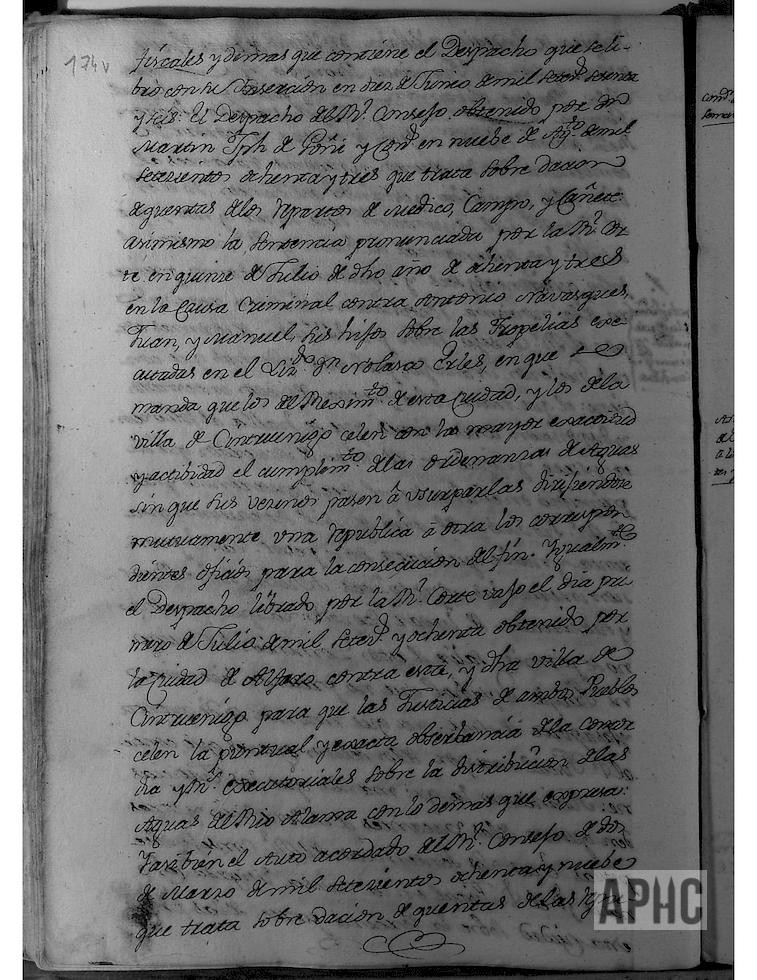 174v
fiscales y demas que contiene el Despacho que se li-
bró con su Insercion en diez de Junio de mil setez.s sesenta
y seis. El Despacho del R.l Consejo obtenido por dn
Martin Jph de Goñi y Con.s en nuebe de Ag.to de mil
setezientos ochenta y tres que trata sobre dacion
de quentas de los repartos de Medico, Campo, y Cañete
asimismo la sentencia pronunciada por la R.l Cor
te en quinze de Julio de dho año de ochenta y tres
en la Causa Criminal contra Antonio Navasques,
Juan, y Manuel, sus hijos sobre las Tropelias exe-
cutadas en el Liz.do dn Nolasco Erles, en que
manda que los del Reximto de esta Ciudad, y los de la
villa de Cintruenigo celen con la mayor exactitud
y actibidad el cumplimto de las ordenanzas de Aguas
sin que sus vezinos pasen â usurparlas dirifiendose
mutuamente una republica â otra los correspon
dientes oficios para la consecucion del fin. Igualmte
el Despacho librado por la R.l Corte vajo el dia pri
mero de Julio de mil setez.s y ochenta obtenido por
la Ciudad de Alfaro contra esta, y dha villa de
Cintruenigo para que las Justicias de ambos Pueblos
celen la puntual y exacta obserbancia de la concor
dia y R.s executoriales sobre la distribucion de las
Aguas del Rio Alama con lo demas que expresa:
Tambien el Auto acordado del R.l Consejo de dos
de Marzo de mil setezientos ochenta y nuebe
que trata sobre dacion de quentas de las
APHC